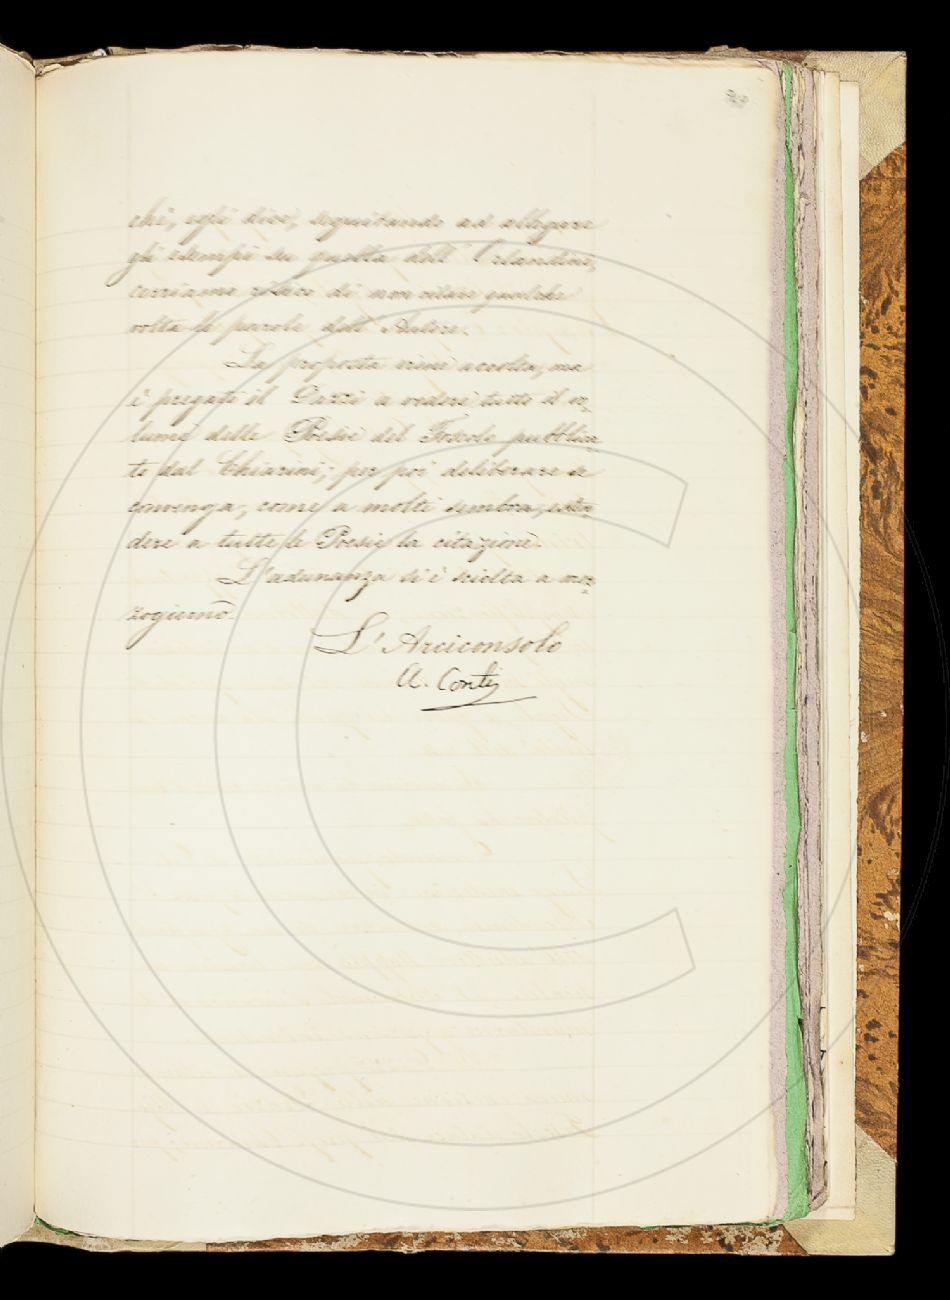 chè, egli dice, seguitando ad allegare
gli esempi su quella dell' Orlandini,
corriamo risico di non citare qualche
volta le parole dell' Autore.
La proposta vien accolta, ma
è pregato il Dazzi a vedere tutto il vo-
lume delle Poesie del Foscolo pubblica-
to dal Chiarini; per poi deliberare se
convenga, come a molti sembra, esten-
dere a tutte le Poesie la citazione.
L'adunanza si è sciolta a mez-
zogiorno.
L'Arciconsolo
A. Conti